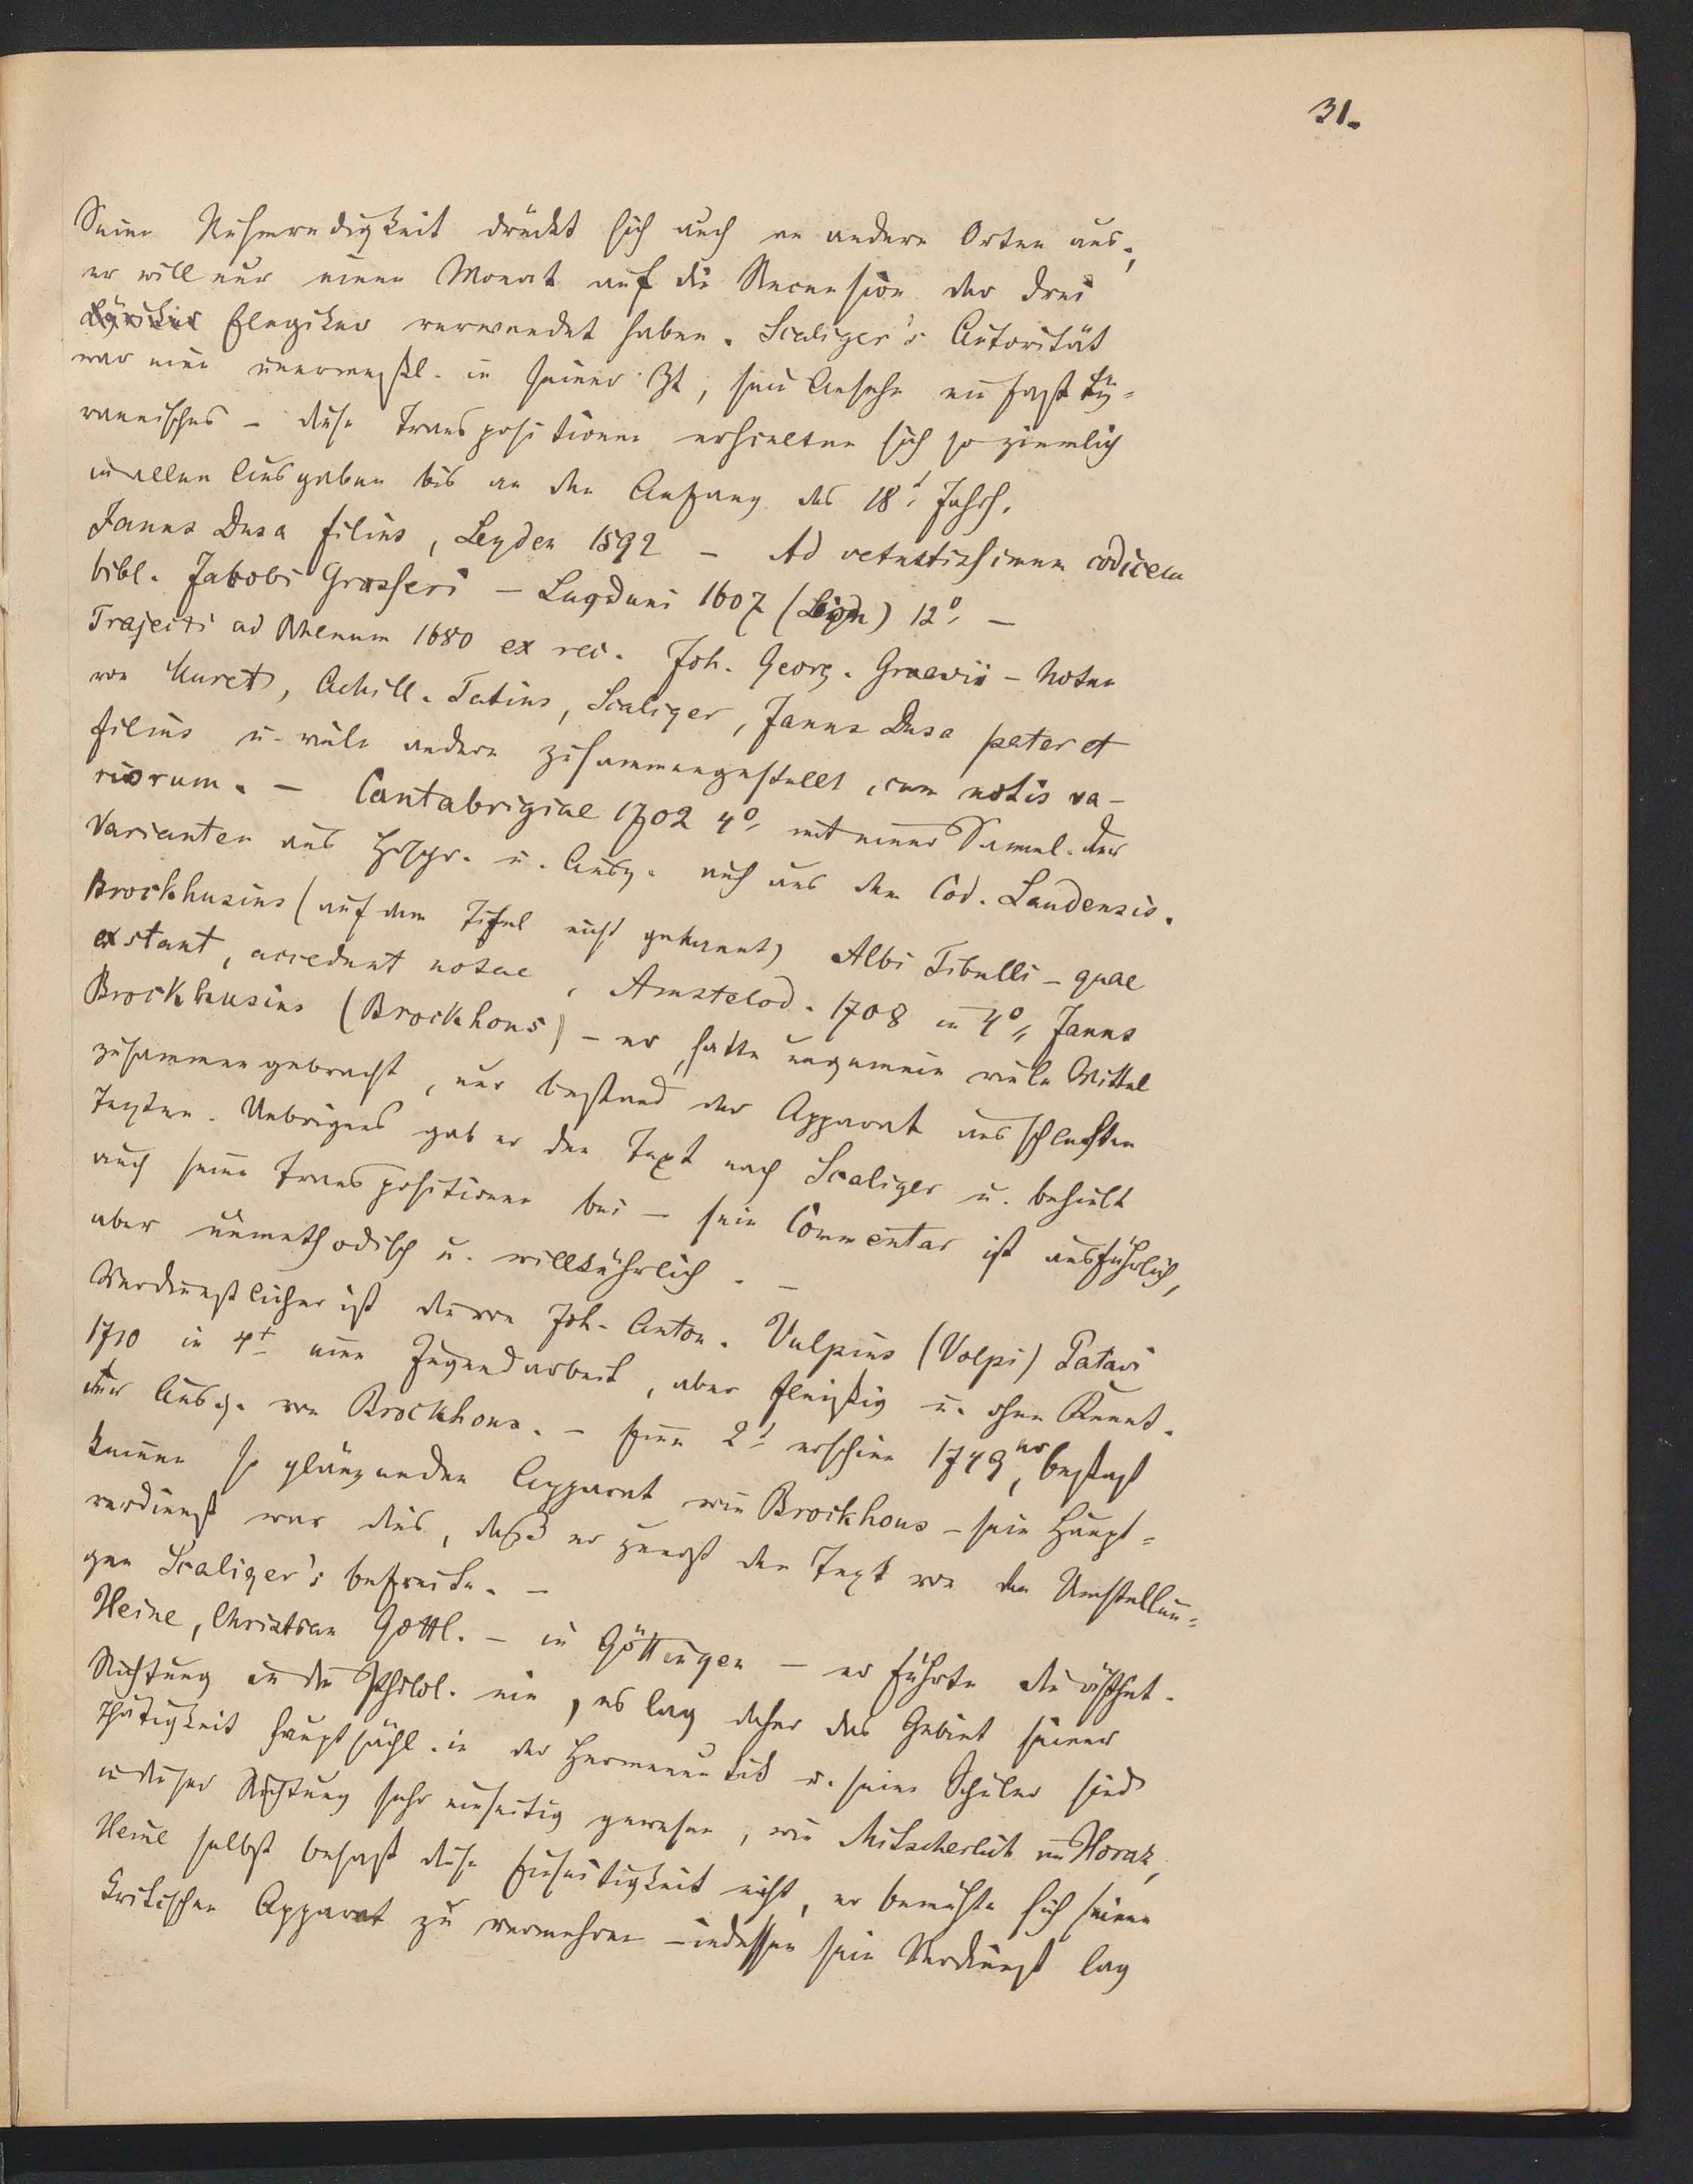 31.
Seine Ruhmredigkeit drückt sich auch an andern Orten aus,
er will nur einen Monat auf die Recension der drei
Lyriker Elegiker verwendet haben. Scaliger's Autorität
war eine unermeßl. in seiner Zt, sein Ansehn ein fast ty=
rannisches – diese Transpositionen erhielten sich so ziemlich
in allen Ausgaben bis an den Anfang des 18t. Jahrh.
Janus Dusa filius, Leyden 1592 – Ad vetustissimum codicem
bibl. Jakobi Grasseri – Lugduni 1607 (Lyon) 12o, –
Trajecti ad Rhenum 1680 ex rec. Joh. Georg. Graevii – Noten
von Muret, Achill. Tatius, Scaliger, Janus Dusa pater et
filius u. viele andere zusammengestellt, cum notis va-
riorum. – Cantabrigiae 1702 4o, mit einer Samml. der
Varianten aus Hdschr. u. Ausg. auch aus dem Cod. Laudensis.
Brockhusius (auf dem Titel nicht genannt) Albi Tibulli – quae
exstant, accedunt notae, Amstelod. 1708 in 4o, Janus
Brockhusius (Brockhous) – er hatte ungemein viele Mittel
zusammengebracht, nur bestand der Apparat aus schlechten
Texten. Uebrigens gab er den Text nach Scaliger u. behielt
auch seine Transpositionen bei – sein Commentar ist ausführlich,
aber unmethodisch u. willkührlich. –
Verdienstlicher ist die von Joh. Anton. Vulpius (Volpi) Patavi
1710 in 4t eine Jugendarbeit, aber fleißig u. ohne Kennt.
der Ausg. von Brockhous. – Seine 2t erschien 1749, er besaß
keinen so glänzenden Apparat wie Brockhous – sein Haupt=
verdienst war dies, daß er zuerst den Text von den Umstellun=
gen Scaliger's befreite. –
Heine, Christian Gottl. – in Göttingen – er führte die ästhet.
Richtung in die Philol. ein, es lag daher das Gebiet seiner
Thätigkeit hauptsächl. in der Hermeneutik u. seine Schüler sind
in dieser Richtung sehr einseitig gewesen, wie Mitscherlich im Horaz,
Heine selbst besaß diese Einseitigkeit nicht, er bemühte sich seinen
kritischen Apparat zu vermehren – indessen sein Verdienst lag